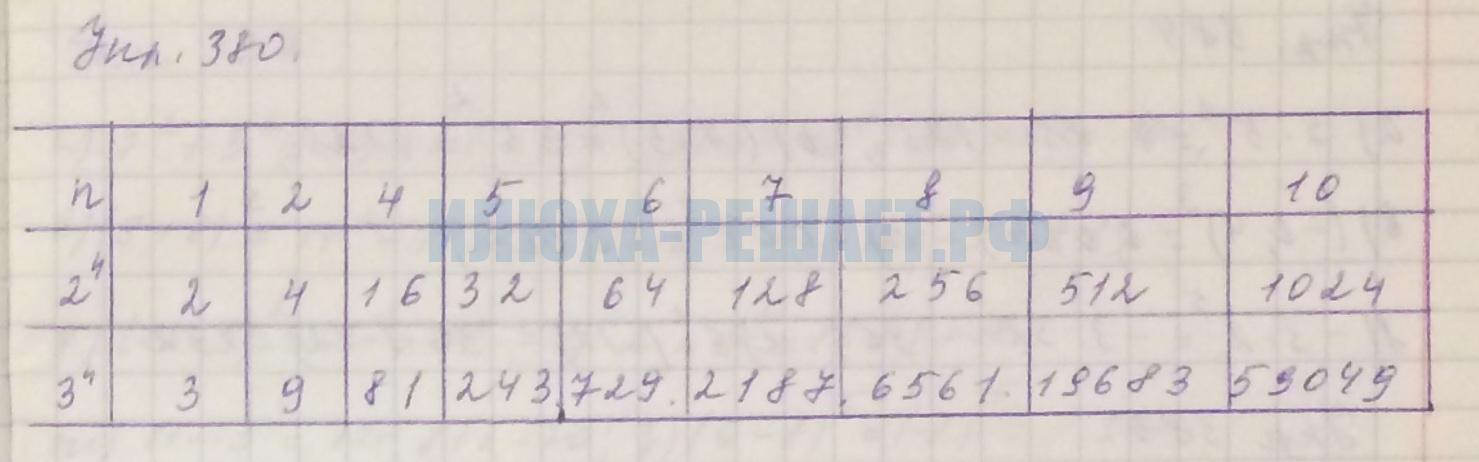 Упр. 380.
n 1 2 4 5 6 7 8 9 10
2ⁿ 2 4 16 32 64 128 256 512 1024
3ⁿ 3 9 81 243 729. 2187. 6561. 19683 59049
ИЛЮХА-РЕШАЕТ.РФ